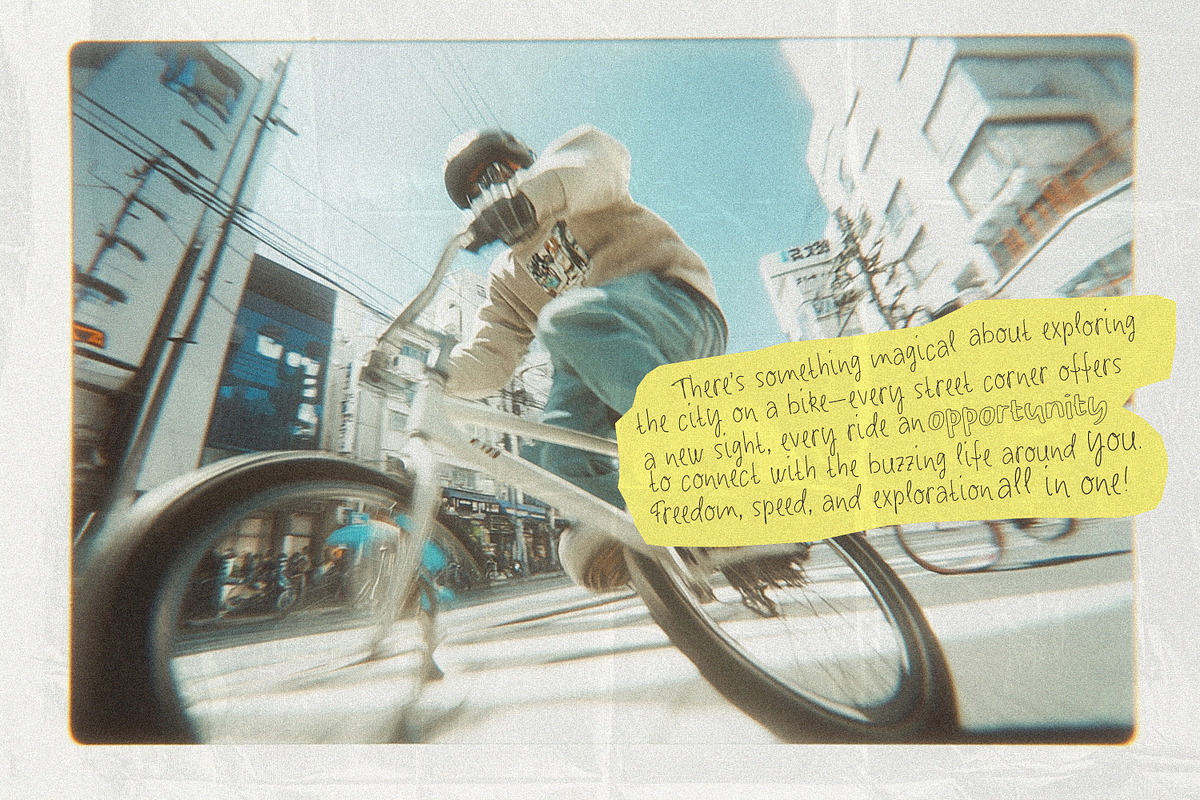 There's something magical about exploring
the city on a bike—every street corner offers
a new sight, every ride an opportunity
to connect with the buzzing life around you.
Freedom, speed, and exploration all in one!